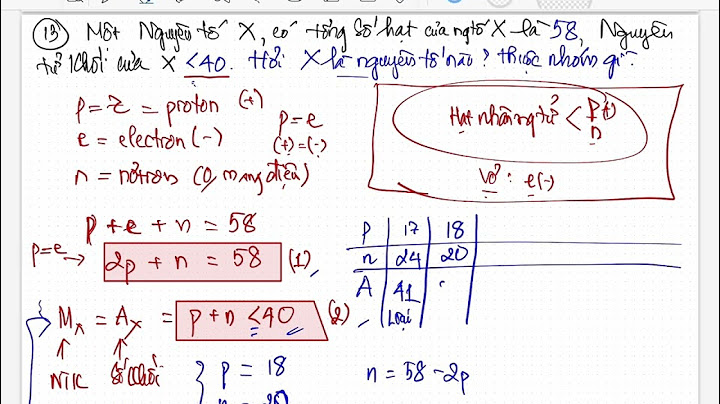 13) Một Nguyên tố X, có tổng số hạt của ngtố X là 58, Nguyên
tử khối của X < 40. Hỏi X là nguyên tố nào? thuộc nhóm gì?
p = Z = proton (+)
e = electron (-)
n = nơtron (0 mang điện)
p = e
(+) = (-)
Hạt nhân ng tử < P(+)
n
Vỏ : e(-)
p + e + n = 58
p=e → 2p + n = 58 (1)
P | 17 | 18
n | 24 | 20
A | 41
Loại
Mx = Ax = p+n < 40 (2)
NTK Số khối
p = 18
n = 20
n = 58 - 2p